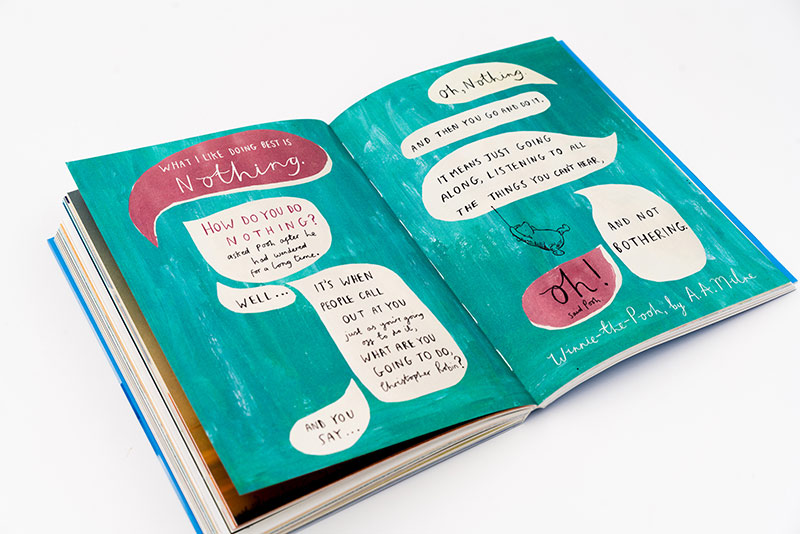 WHAT I LIKE DOING BEST IS
Nothing.
HOW DO YOU DO
NOTHING?
asked Pooh after he
had wondered
for a long time.
WELL...
IT'S WHEN
PEOPLE CALL
OUT AT YOU
just as you're going
off to do it,
WHAT ARE YOU
GOING TO DO,
Christopher Robin?
AND YOU
SAY...
Oh, Nothing.
AND THEN YOU GO AND DO IT.
IT MEANS JUST GOING
ALONG, LISTENING TO ALL
THE THINGS YOU CAN'T HEAR,
AND NOT
BOTHERING.
Oh!
Said Pooh
Winnie-the-Pooh, by A.A Milne